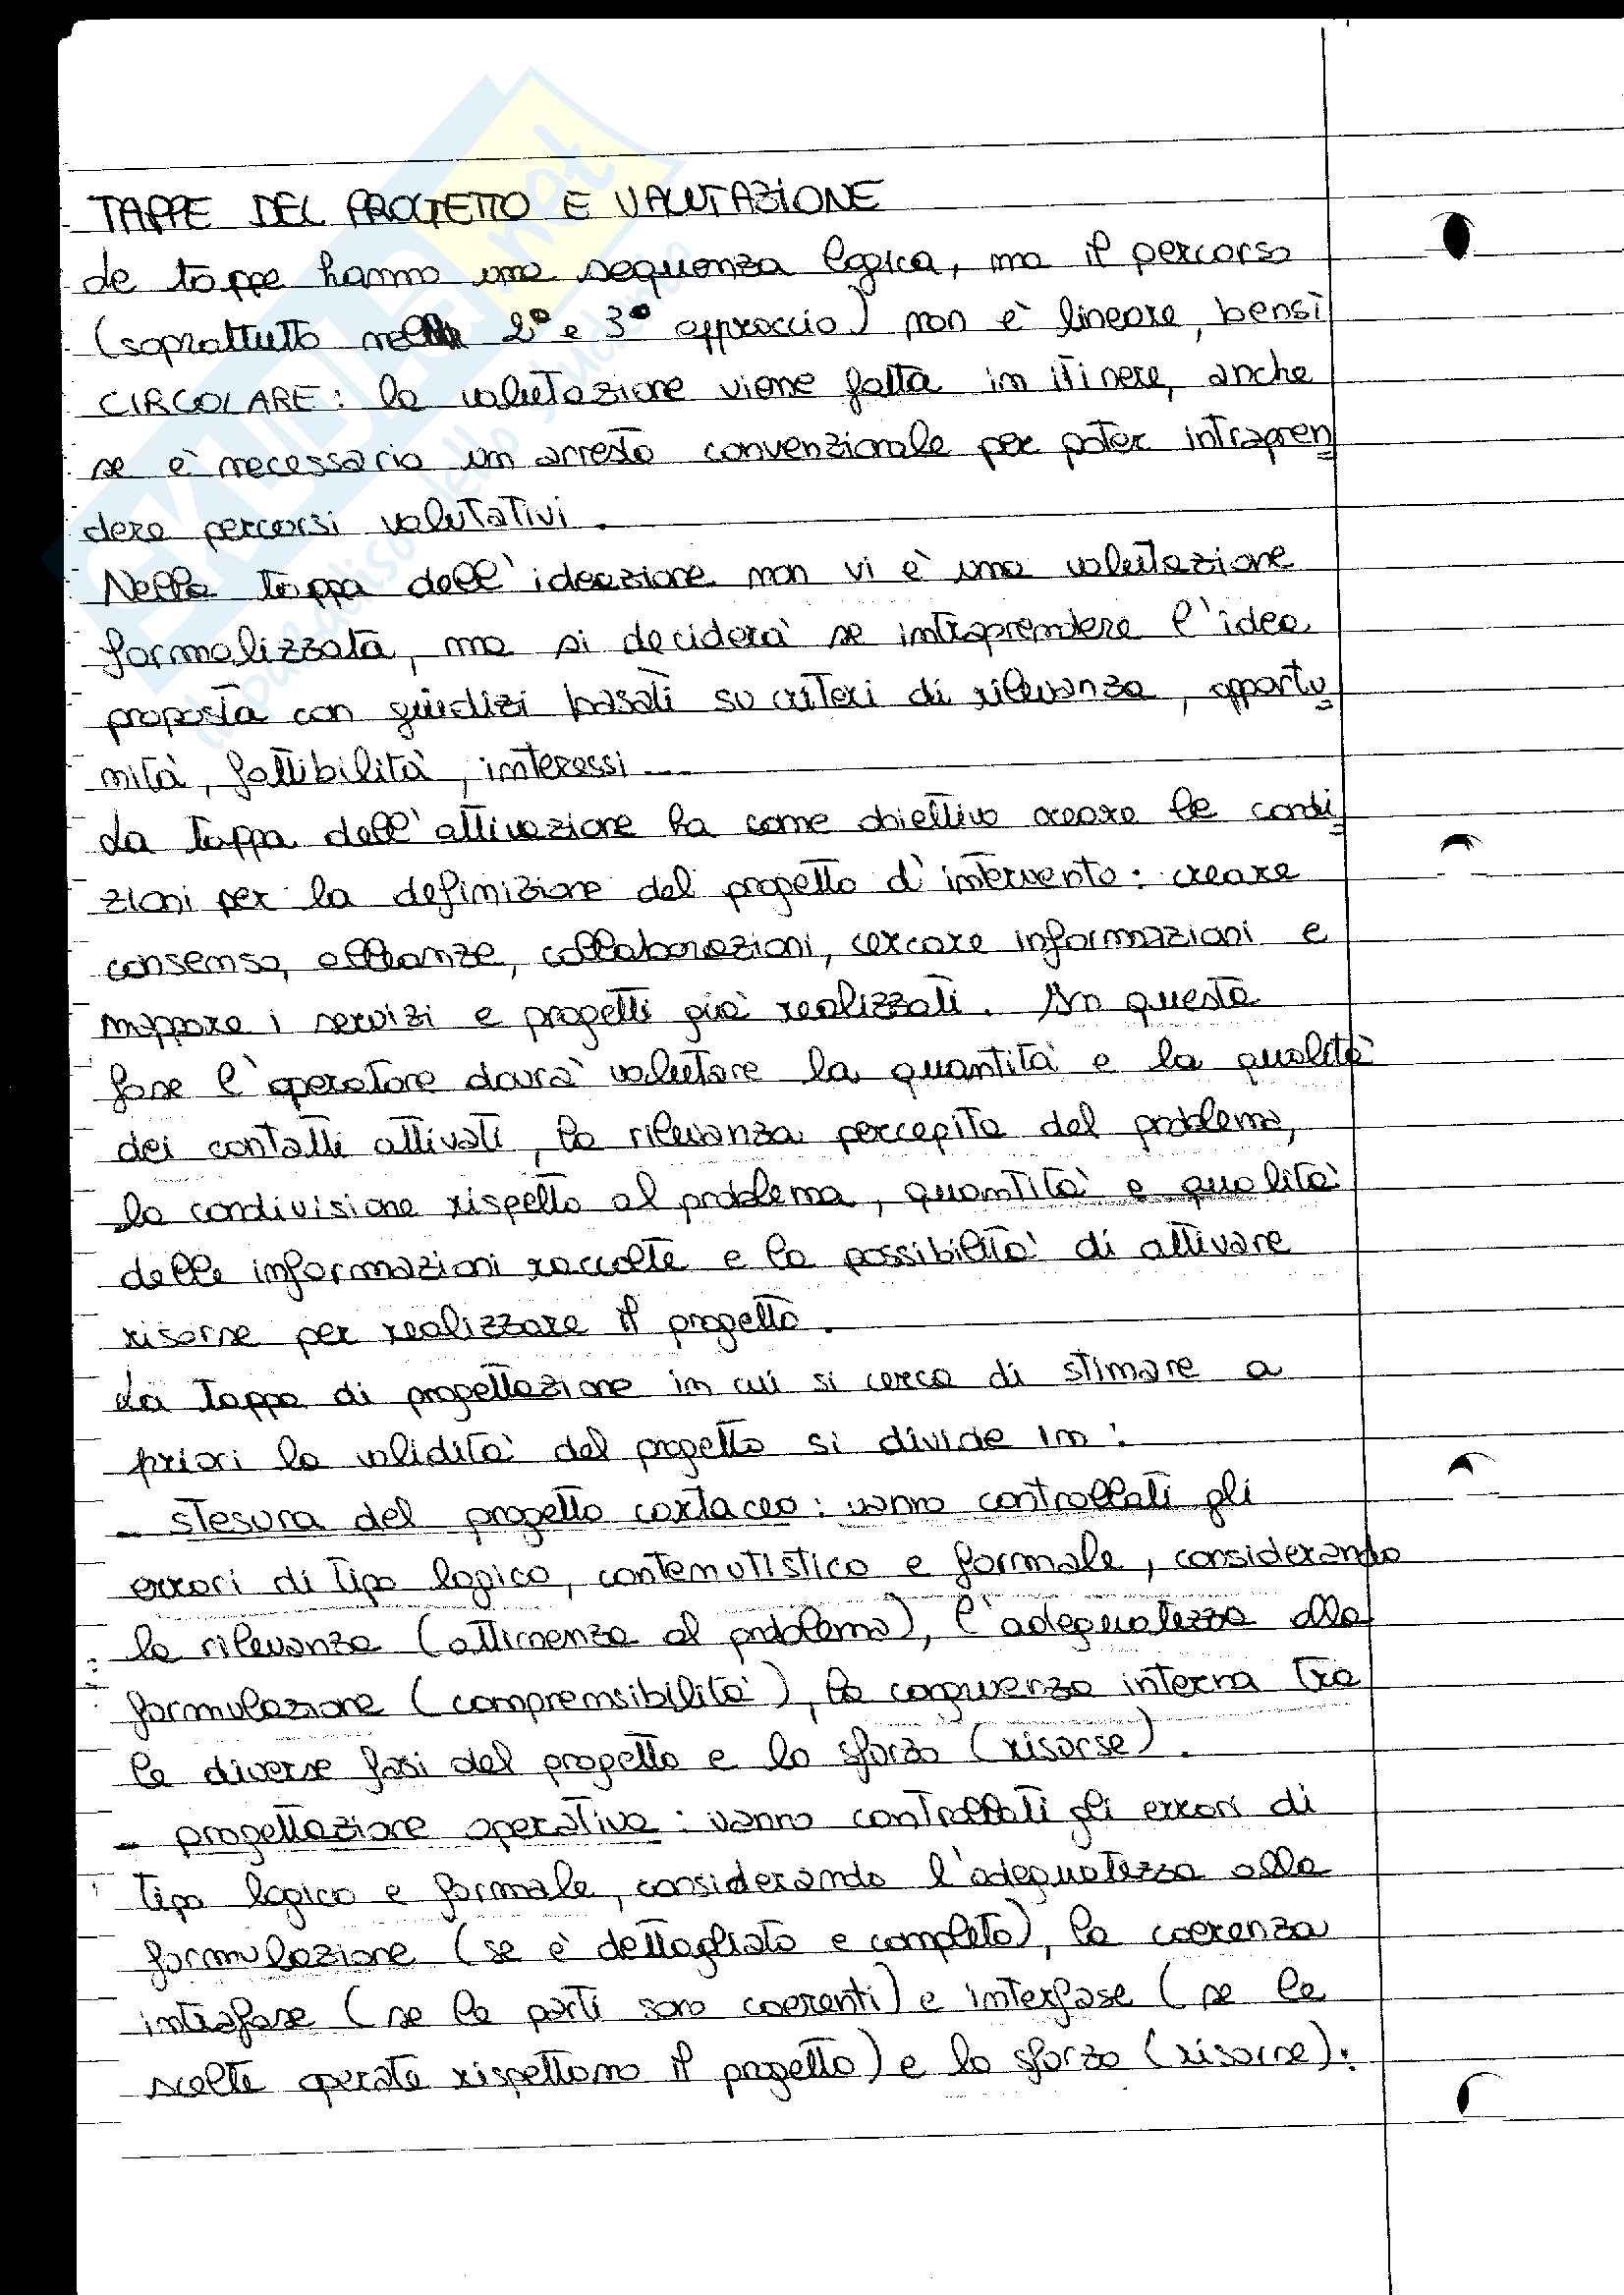 TAPPE DEL PROGETTO E VALUTAZIONE
Le tappe hanno una sequenza logica, ma il percorso
(soprattutto nel 2° e 3° approccio) non è lineare, bensì
CIRCOLARE: la valutazione viene fatta in itinere, anche
se è necessario un arresto convenzionale per poter intrapren
dere percorsi valutativi.
Nella tappa dell'ideazione non vi è una valutazione
formalizzata, ma si deciderà se intraprendere l'idea
proposta con giudizi basati su criteri di rilevanza, opportu
nità, fattibilità, interessi...
La tappa dell'attivazione ha come obiettivo creare le condi
zioni per la definizione del progetto d'intervento: creare
consenso, alleanze, collaborazioni, cercare informazioni e
mappare i servizi e progetti già realizzati. In questa
fase l'operatore dovrà valutare la quantità e la qualità
dei contatti attivati, la rilevanza percepita del problema,
la condivisione rispetto al problema, quantità e qualità
delle informazioni raccolte e la possibilità di attivare
risorse per realizzare il progetto.
La tappa di progettazione in cui si cerca di stimare a
priori la validità del progetto si divide in:
- stesura del progetto cartaceo: vanno controllati gli
errori di tipo logico, contenutistico e formale, considerando
la rilevanza (attinenza al problema), l'adeguatezza alla
formulazione (comprensibilità), la congruenza interna tra
le diverse fasi del progetto e lo sforzo (risorse).
- progettazione operativa: vanno controllati gli errori di
tipo logico e formale, considerando l'adeguatezza alla
formulazione (se è dettagliato e completo), la coerenza
intrafase (se le parti sono coerenti) e interfase (se le
scelte operate rispettano il progetto) e lo sforzo (risorse).